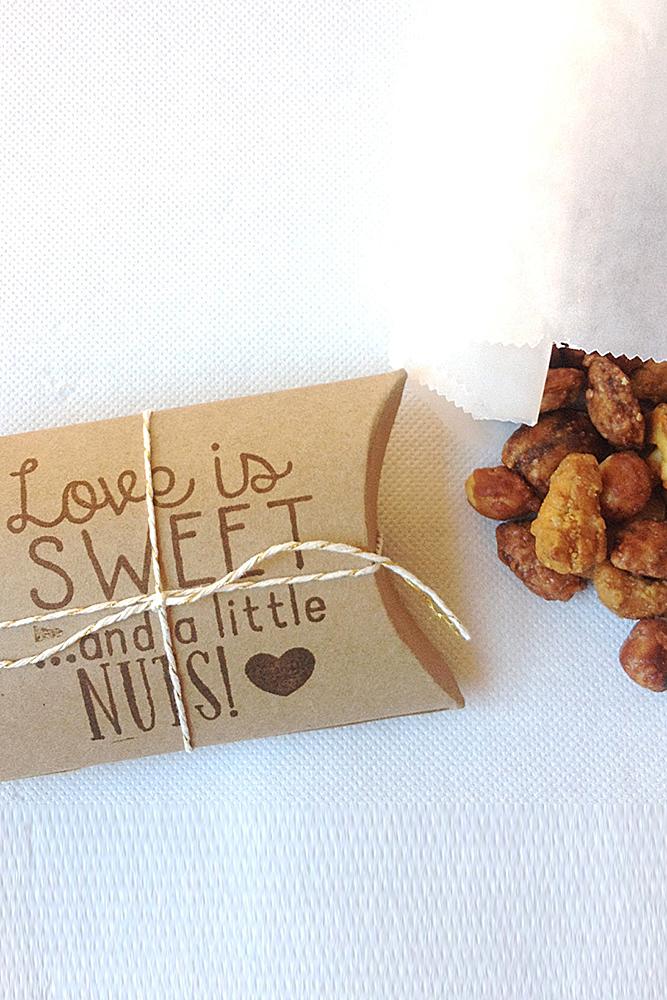 Love is
SWEET
...and a little
NUTS!